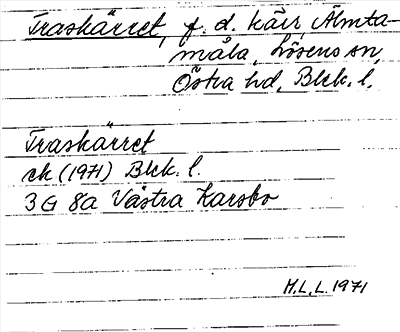 Traskärret, f. d. kärr, Älmta-
måla, Lösens sn,
Östra hd, Blek. l.
Traskärret
ek (1971) Blek. l.
3G 8a Västra Karsbo
M.L.L. 1971